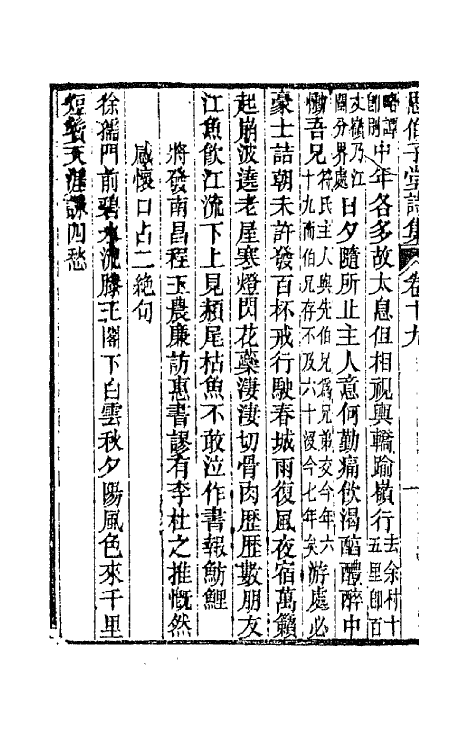 思伯子堂詩集 卷十九
略譚中年各多故太息但相視輿轎踰橫行去余村十五里卽百
丈嶺乃江閩分界處日夕隨所止主人意何勤痛飲渴醄醴醉中
慟吾兄符民主人與先伯兄爲兄弟交今年六十九而伯兄存不及六十沒今七年矣游處必
豪士詰朝未許發百杯戒行駛春城雨復風夜宿萬籟
起崩波遶老屋寒燈閃花蘂淒淒切骨肉歷歷數朋友
江魚飲江流下上見頳尾枯魚不敢泣作書報魴鯉
將發南昌程玉農廉訪惠書謬有李杜之推慨然
感懷口占二絶句
徐孺門前碧水流滕王閣下白雲秋夕陽風色來千里
短髮天涯詠四愁